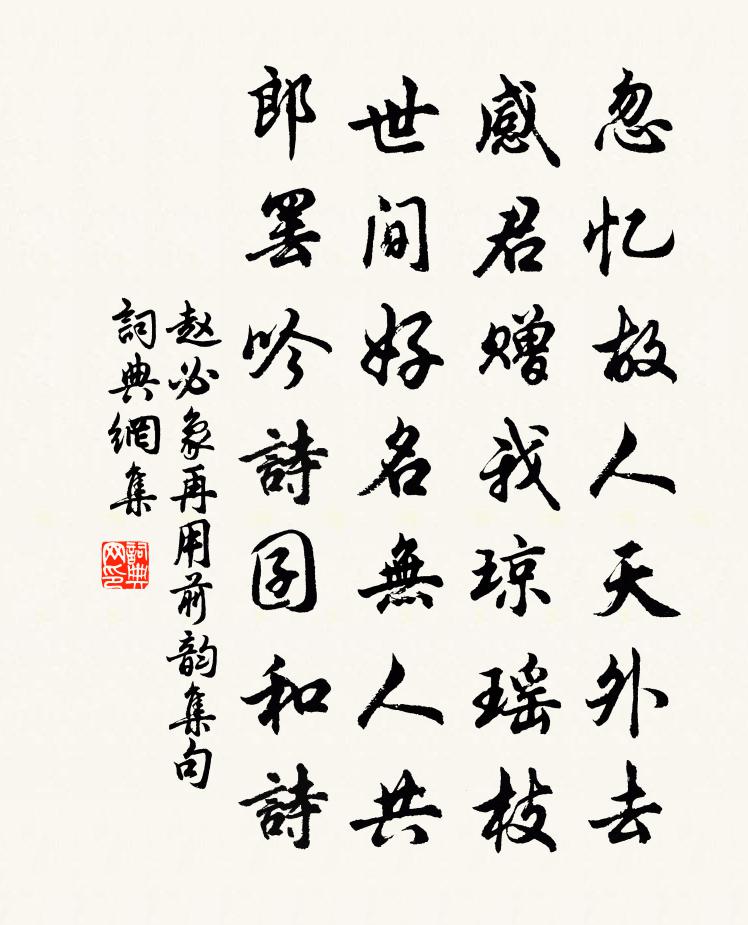 忽忆故人天外去
感君赠我琼瑶枝
世间好名無人共
郎罢吟詩囝和詩
赵必象再用前韵集句
詞典網集
詞典
网印